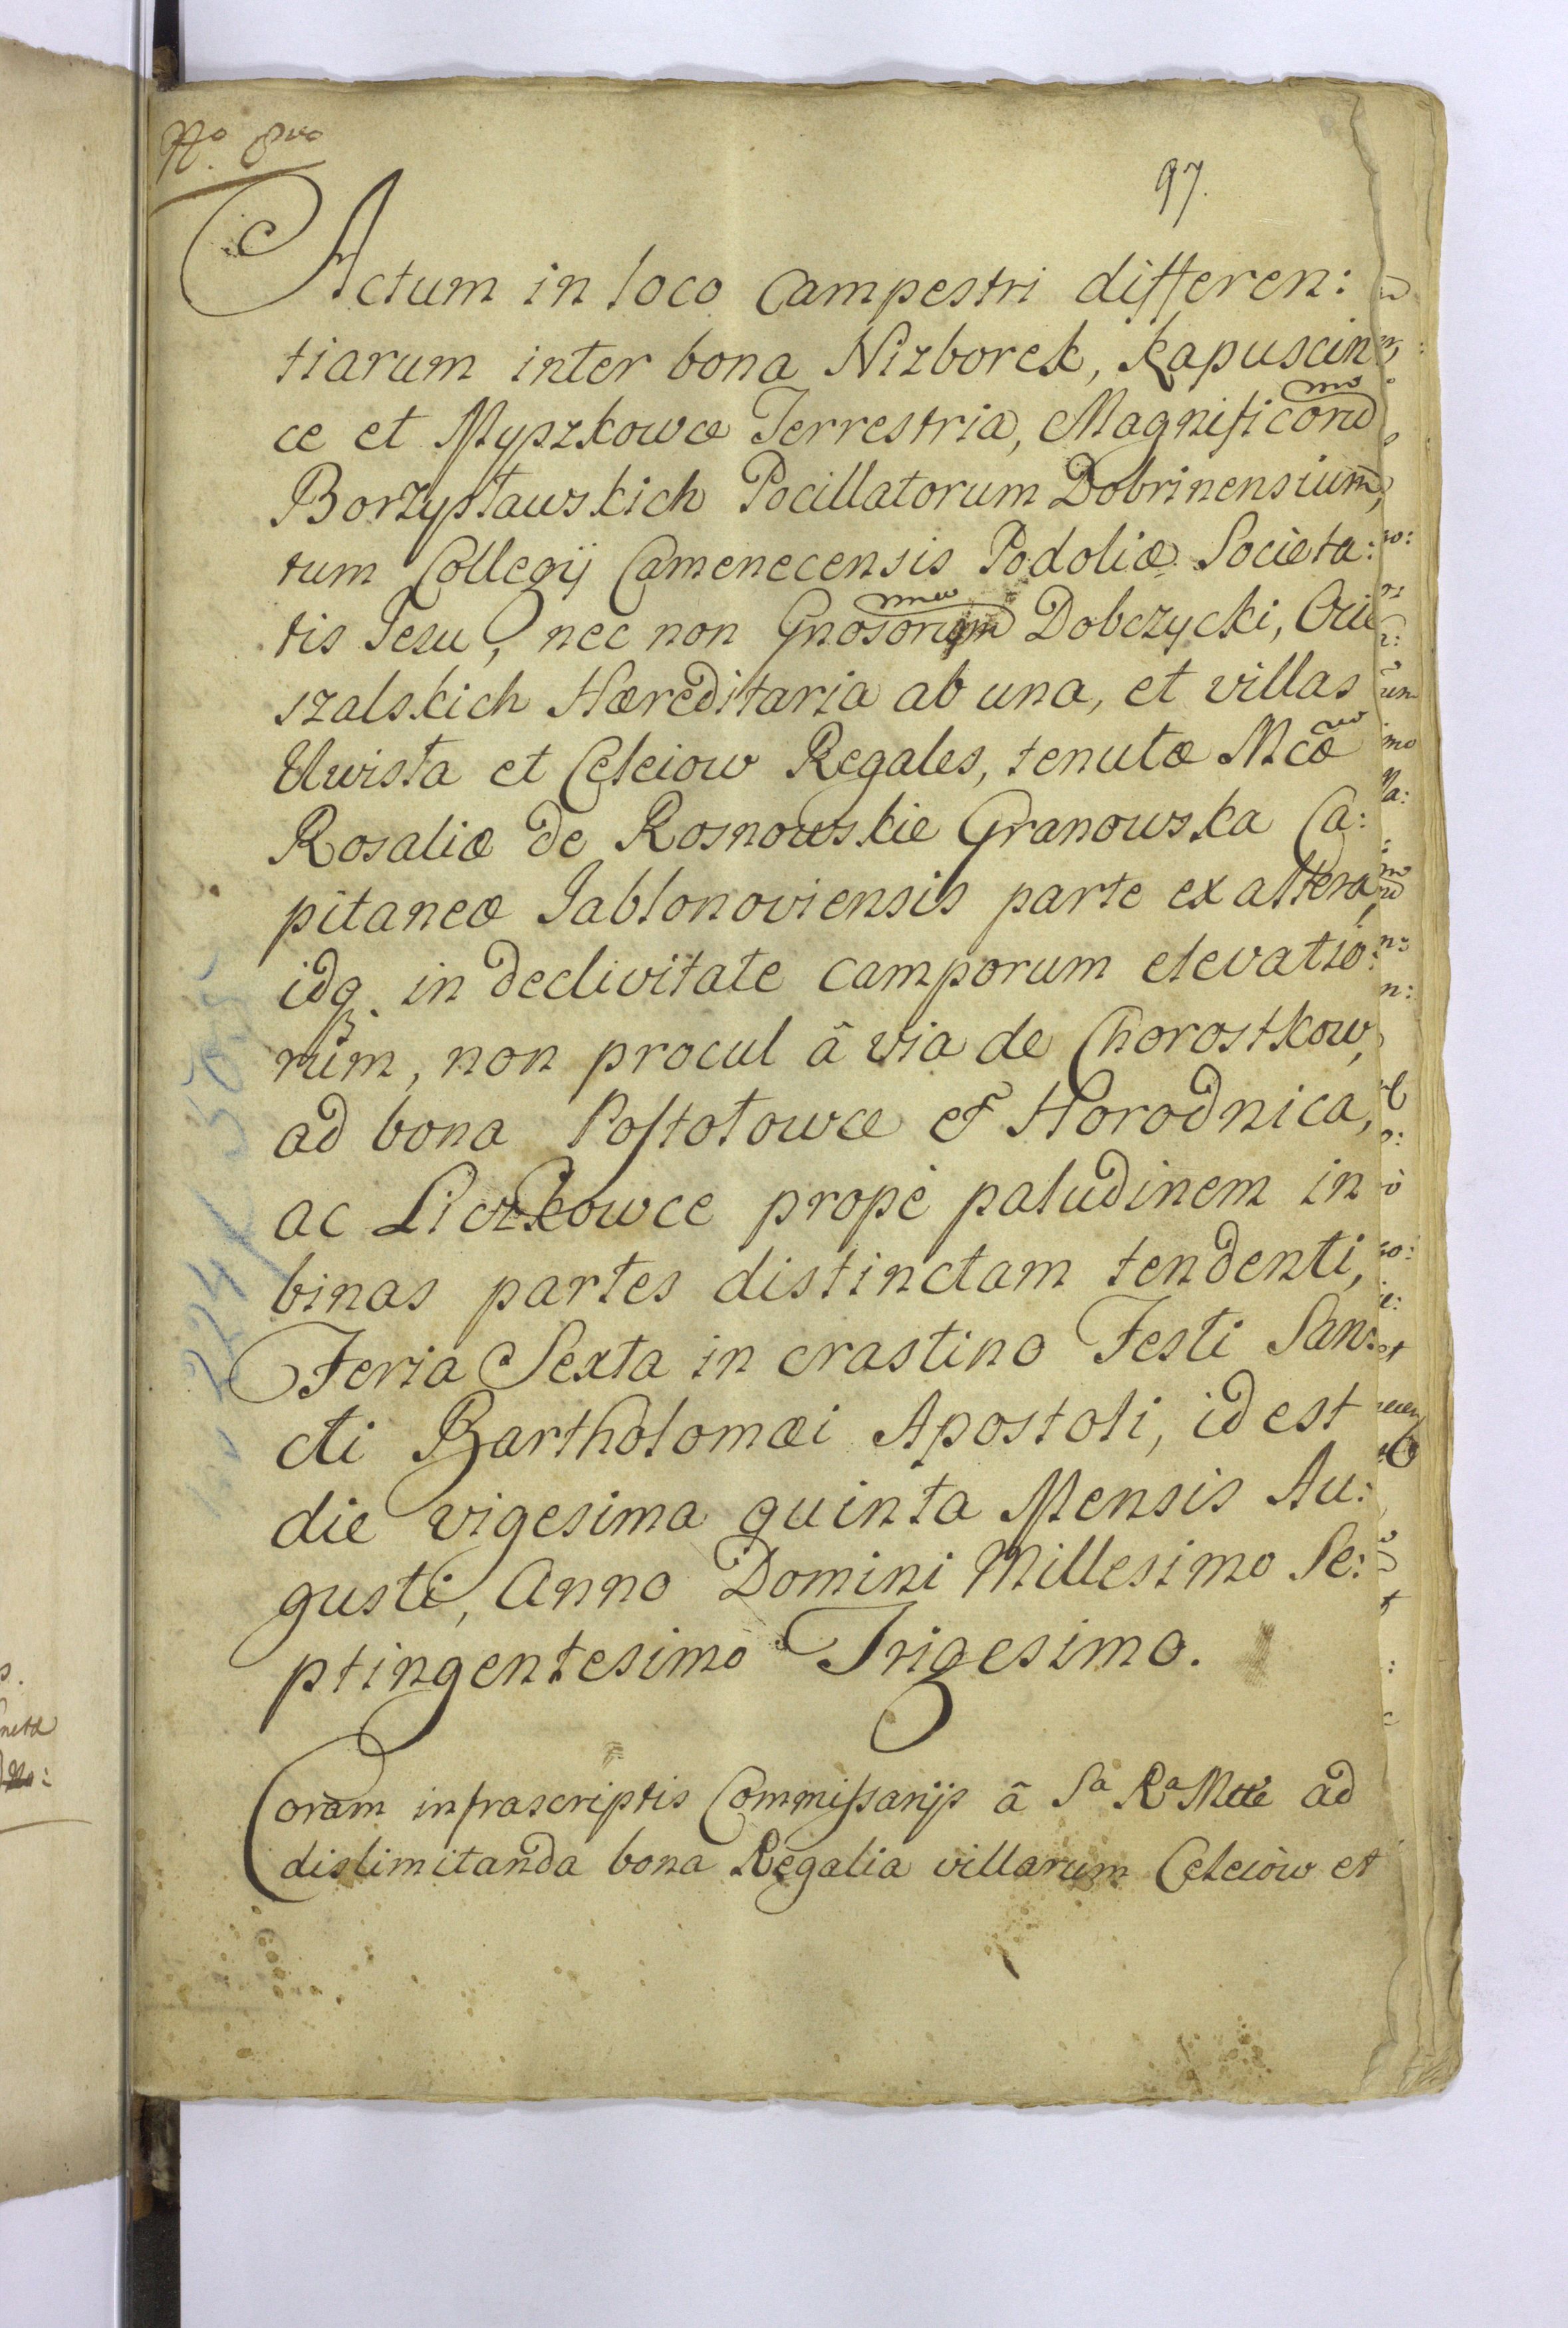 No. 8vo
97.
Actum in loco Campestri differen:
tiarum inter bona Nizborek, Kapuscin
ce et Myszkowce Terrestria, Magnificoru
Borzysławskich Pocillatorum Dobrinensium,
tum Collegij Camenecensis Podoliæ Societa:
tis Jesu, nec non Gnosorum Dobczycki,
szalskich Hæreditaria ab una, et villas
Uwisła et Celeiow Regales, tenutæ Mcæ
Rosaliæ de Rosnowskie Granowska Ca:
pitaneæ Jabłonoviensis parte ex altera,
idq3 in declivitate camporum elevatio:
rum, non procul â via de Chorostkow,
ad bona Postołowce et Horodnica,
ac Liczkowce propè paludinem in
binas partes distinctam tendenti,
Feria Sexta in crastino Festi San:
cti Bartholomæi Apostoli, id est
die vigesima quinta Mensis Au:
gusti, Anno Domini Millesimo Se:
ptingentesimo Trigesimo.
Coram infrascriptis Commissarijs â Sa Ra Mtte ad
dislimitanda bona Regalia villarum Celeiòw et